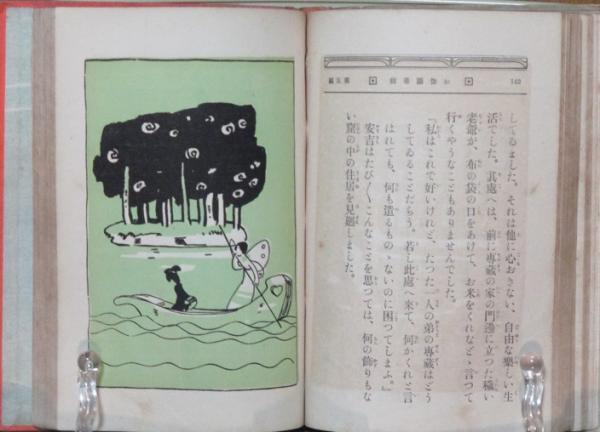 142
お伽噺華籠
第五編
してゐました。それは他に心おきない、自由な樂しい生
活でした。其處へは、前に專藏の家の門邊に立つた穢い
老爺が、布の袋の口をあけて、お米をくれなどゝ言つて
行くやうなこともありませんでした。
「私はこれで好いけれど、たつた一人の弟の專藏はどう
してゐることだらう。若し此處へ來て、何かくれと言
はれても、何も遣るものゝないのに困つてしまふ。」
安吉はたび〳〵こんなことを思つては、何の飾りもな
い窟の中の住居を見廻しました。